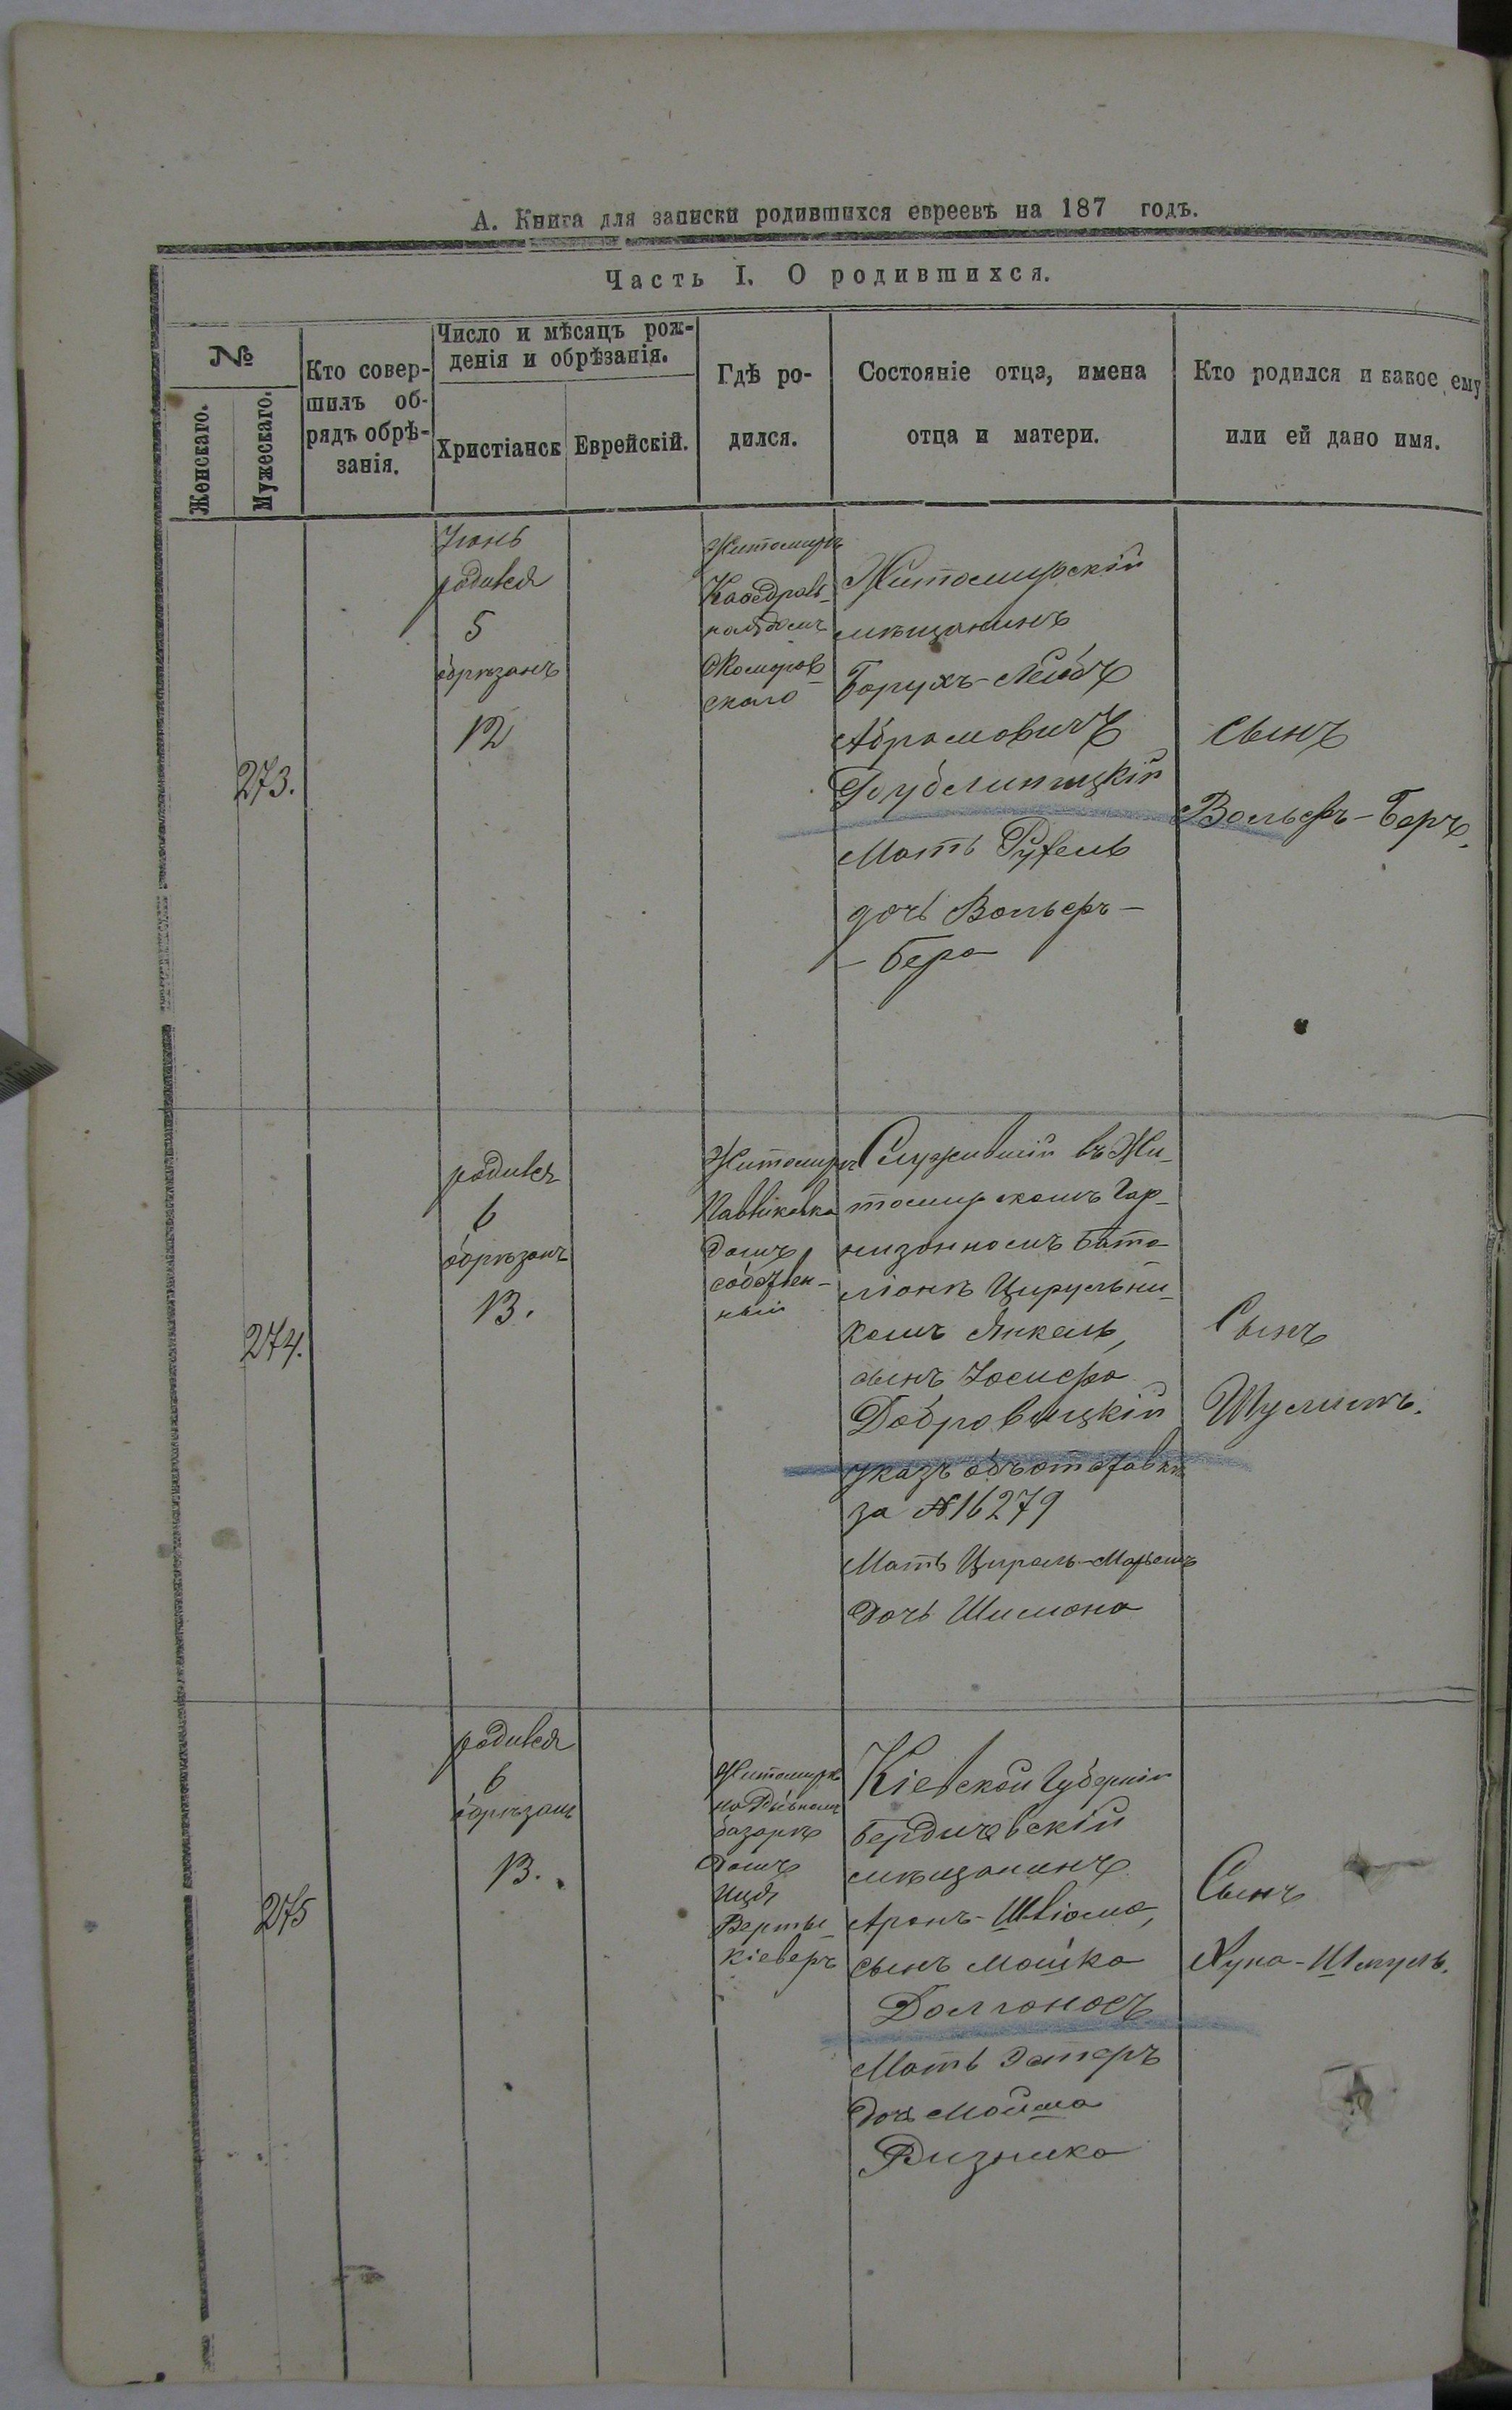 А. Книга для записки родившихся евреевъ на 187 годъ.
Часть I. О родившихся.
№
Женскаго.
Мужескаго.
Кто совер-
шилъ об-
рядъ обрѣ-
занія.
Число и мѣсяцъ рож-
денія и обрѣзанія.
Христіанск
Еврейскій.
Гдѣ ро-
дился.
Состояніе отца, имена
отца и матери.
Кто родился и какое ему
или ей дано имя.
273.
Іюнь
родился
5
обрѣзанъ
12
Житомиръ
Каѳедраль-
домъ
Комаров-
скаго
Житомирскій
мѣщанинъ
Борухъ-Лейбъ
Абрамовичъ
Мать Рухель
дочь Вольфъ-
-Бера
сынъ
Вольфъ-Беръ.
274.
родился
6
обрѣзанъ
13.
Житомиръ
Павликовка
домъ
собствен-
ный
Служившій въ Жи-
томирскомъ Гар-
низонномъ Бата-
ліонѣ Цирульни-
комъ Янкель,
сынъ Іосифа
Добровицкій
указъ объ отставкѣ
за №16279
Мать Цирель-Марьемъ
дочь Шимона
Сынъ
Шулимъ.
275
родился
6
обрѣзанъ
13.
Житомиръ
на Рыбномъ
базарѣ
домъ
Иця
Верты-
кіеверъ
Кіевской Губерніи
Бердичевскій
мѣщанинъ
Аронъ-Шліома,
сынъ Мошка
Долгоносъ
Мать Эстеръ
дочь Мойша
Ризника
Сынъ
Хуна-Шмуль.